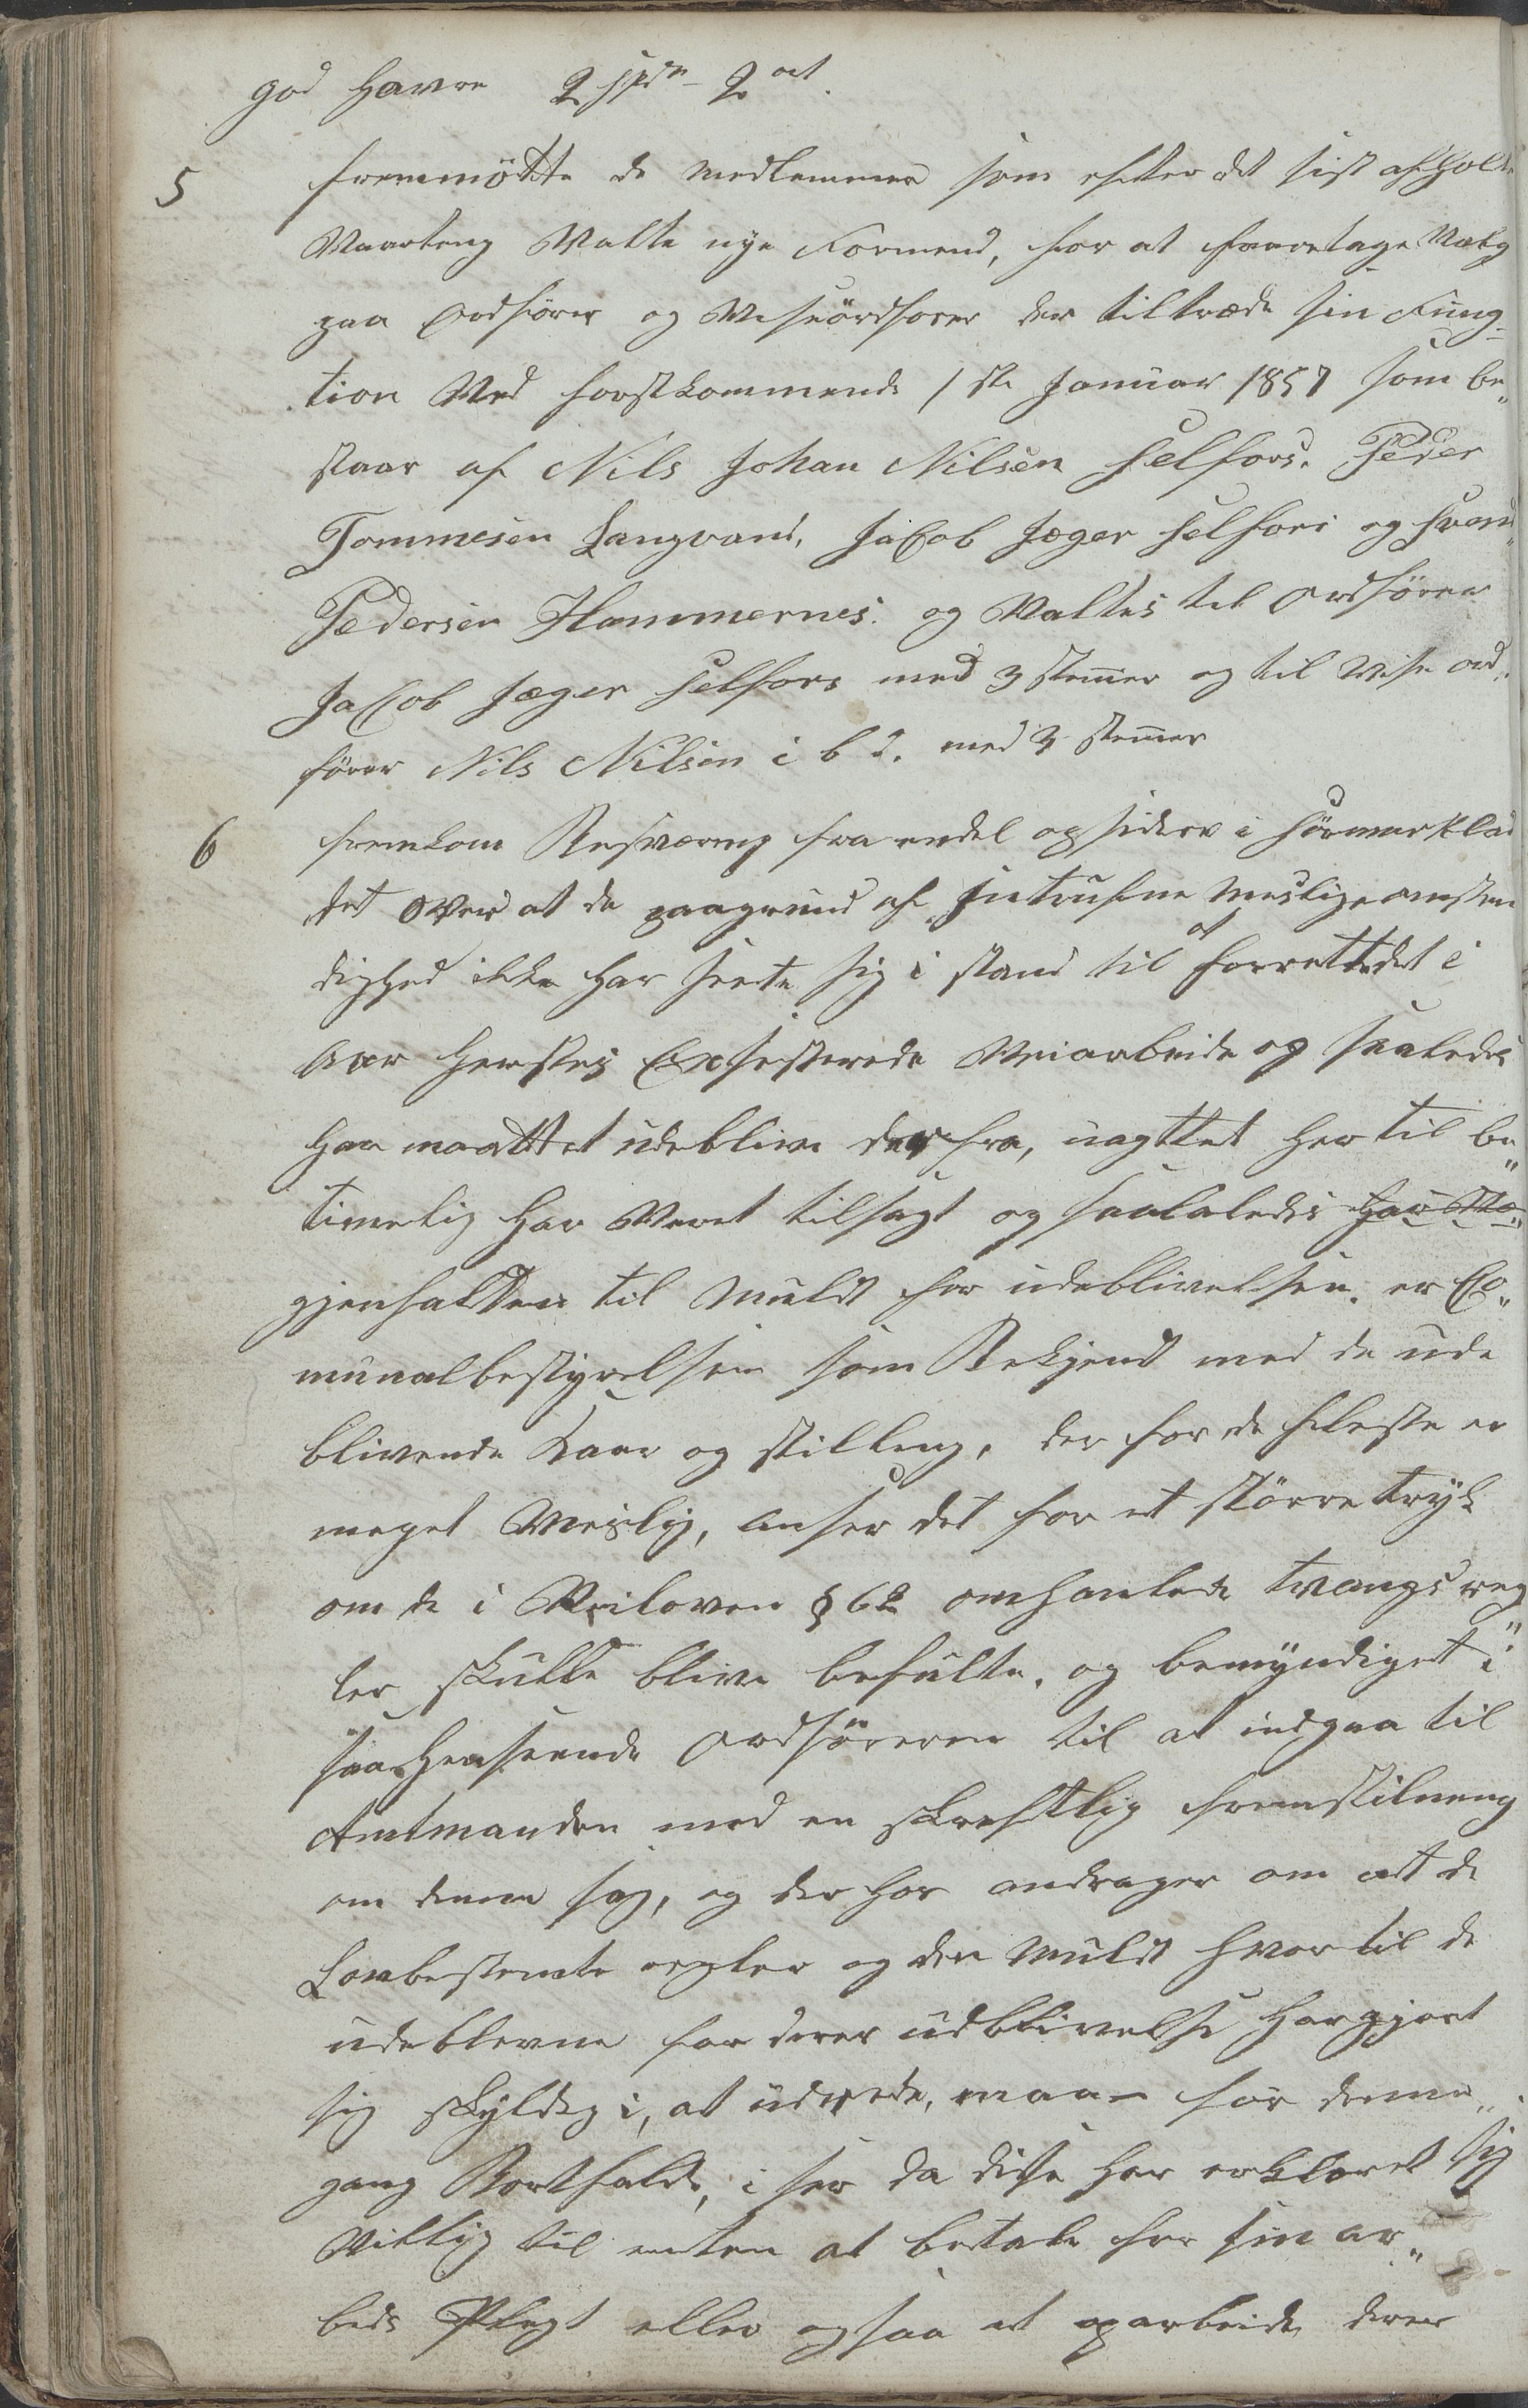 god Havre 2 spd - 2 ort.
5 fremmötte de Medlemmer som efter det sist afholdte
Maarteng Valte nye Formend, for at foretage Valg
paa Ordförer og Viseördforer der tiltrede sin Fung-
tion Ved forstkommende 1ste Januar 1857 som be„
staar af Nils Johan Nilsen Selfors. Peder
Tommesen Langvand, Jacob Jæger Selfors og Svend
Pedersen Hammernes. og Valtes til Ordförer
Jacob Jæger Selfors med 3 stemmer og til Vise ord„
förer Nils Nilsen i b d. med 3 stemmer
6 fremkom Besværing fra endel opsidere i
det over at de paagrund af intrufne Meslige omsten
dighed ikke har seete sig i stand til at forrette det i
Aar Herstes Exsisterede Veiarbeide og saaledes
har maattet udeblive derfra, uagttet her til be„
timelig har Veret tilsagt og saalaledis har
gjenfalden til Muldt for udeblivelsen. er Co„
munalbestyrelsen som Bekjendt med de ude
blivende Kaar og stilling, der for de fleste er
meget Meslig, anser det for et större tryk
om de i Veiloven § 62 omhanlede tvangs reg„
ler skulle blive befulte. og bemyndiget i
saa Henseende Ordföreren til at indgaa til
Amtmanden med en skreftlig fremstilning
om denne sag, og der hos andrager om at de
Lovbestemte regler og den Muldt hvortil de
udeblevne for derer udblivelse har gjort
sig skyldig i, at udrede, maa for denne„
gang Bortfalde, i ser da disse har erkloret sig
Villig til enten at betale for sin ar„
beds Pligt eller ogsaa at oparbeide derer